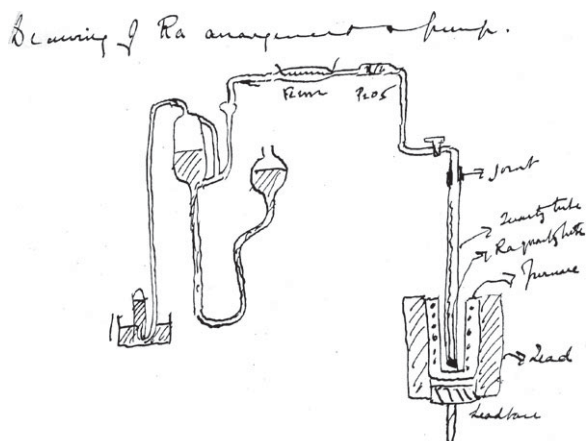 Drawing of Ra arrangement & pump.
P2O5
Joint
Quartz tube
Ra quartz tube
furnace
Lead
Lead base